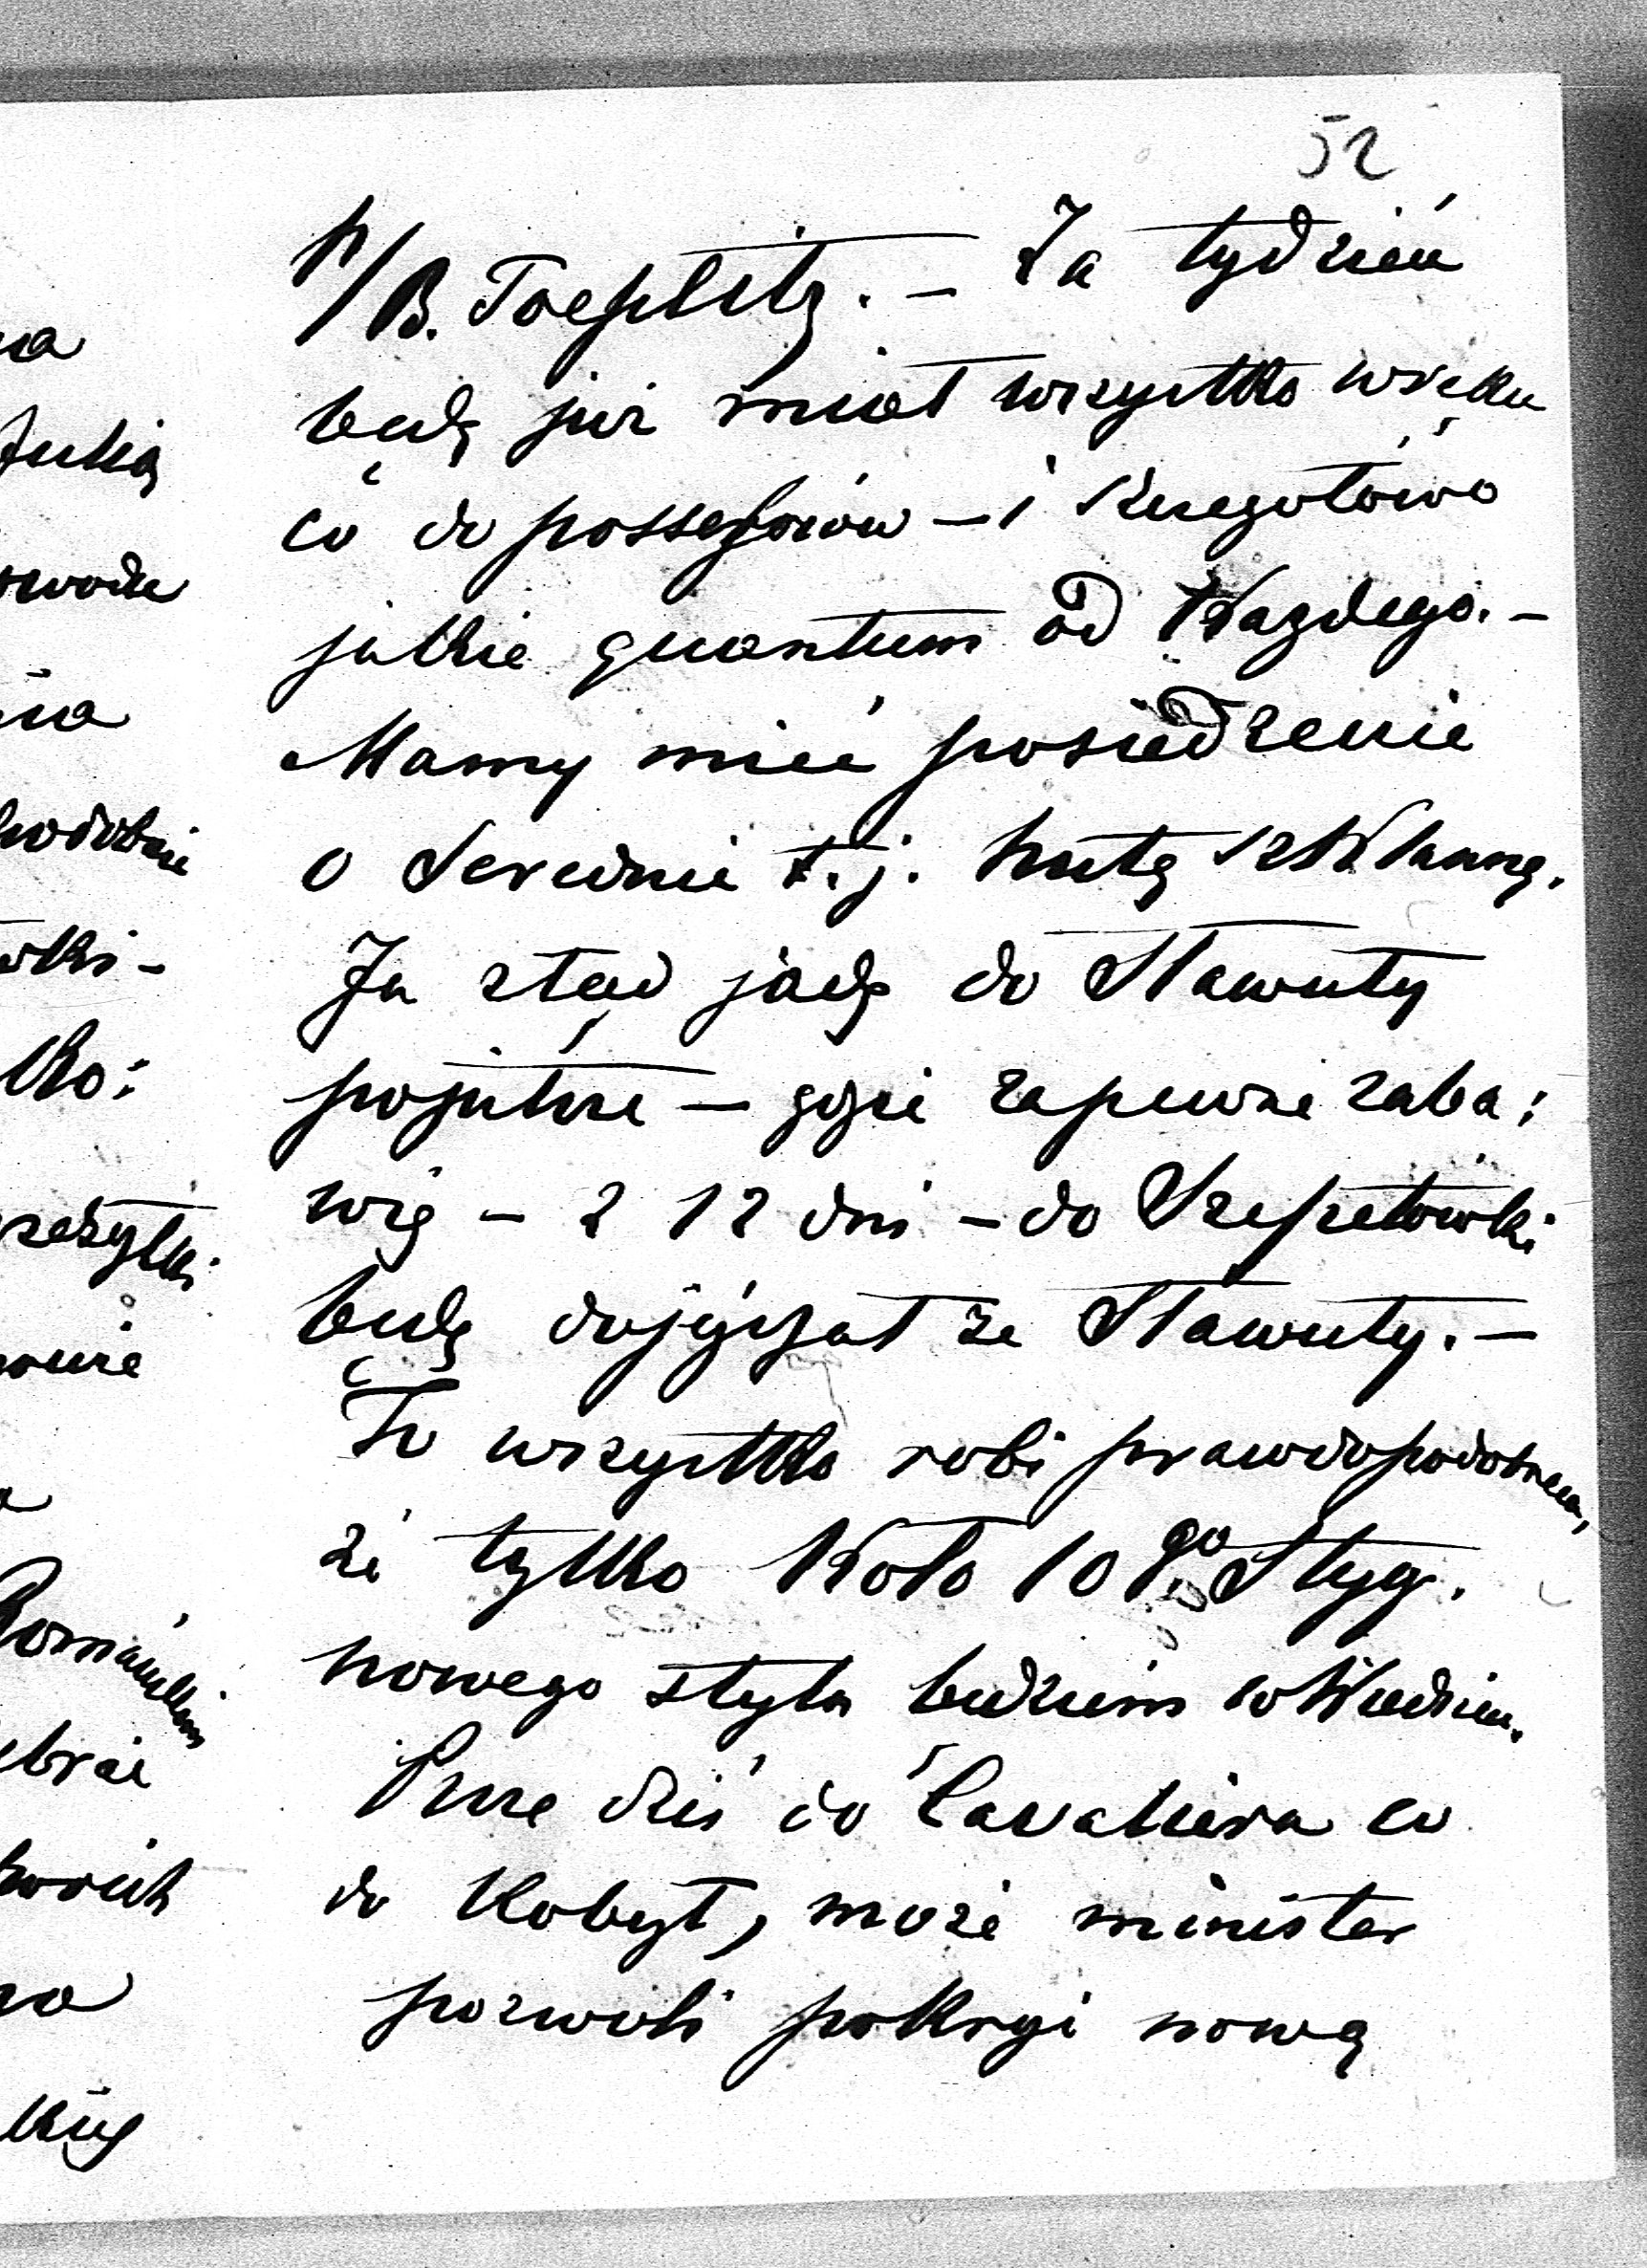 52
p/B. Toeplitz. — Za tydzień
będę już miał wszystko w ręku
co do possessorów — i
jakie quantum od Każdego. —
Mamy mieć posiedzenie
o Serednie t.j. hutę szklanną.
Ja ztąd jadę do Sławuty
pojutrze — gdzie zapewne zaba:
wię — z 12 dni — do Szepetówki
będę dojeżdżał ze Sławuty. —
To wszystko robi prawdopodobnem,
że tylko Koło 10go Stycz.
nowego stylu będziem w Wiedniu.
Piszę dziś do Cavaliera co
do Kobył, może minister
pozwoli pokryć nową